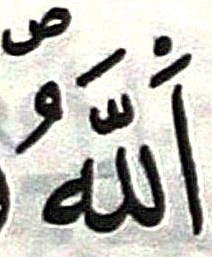 اَللّٰهُ ۖ